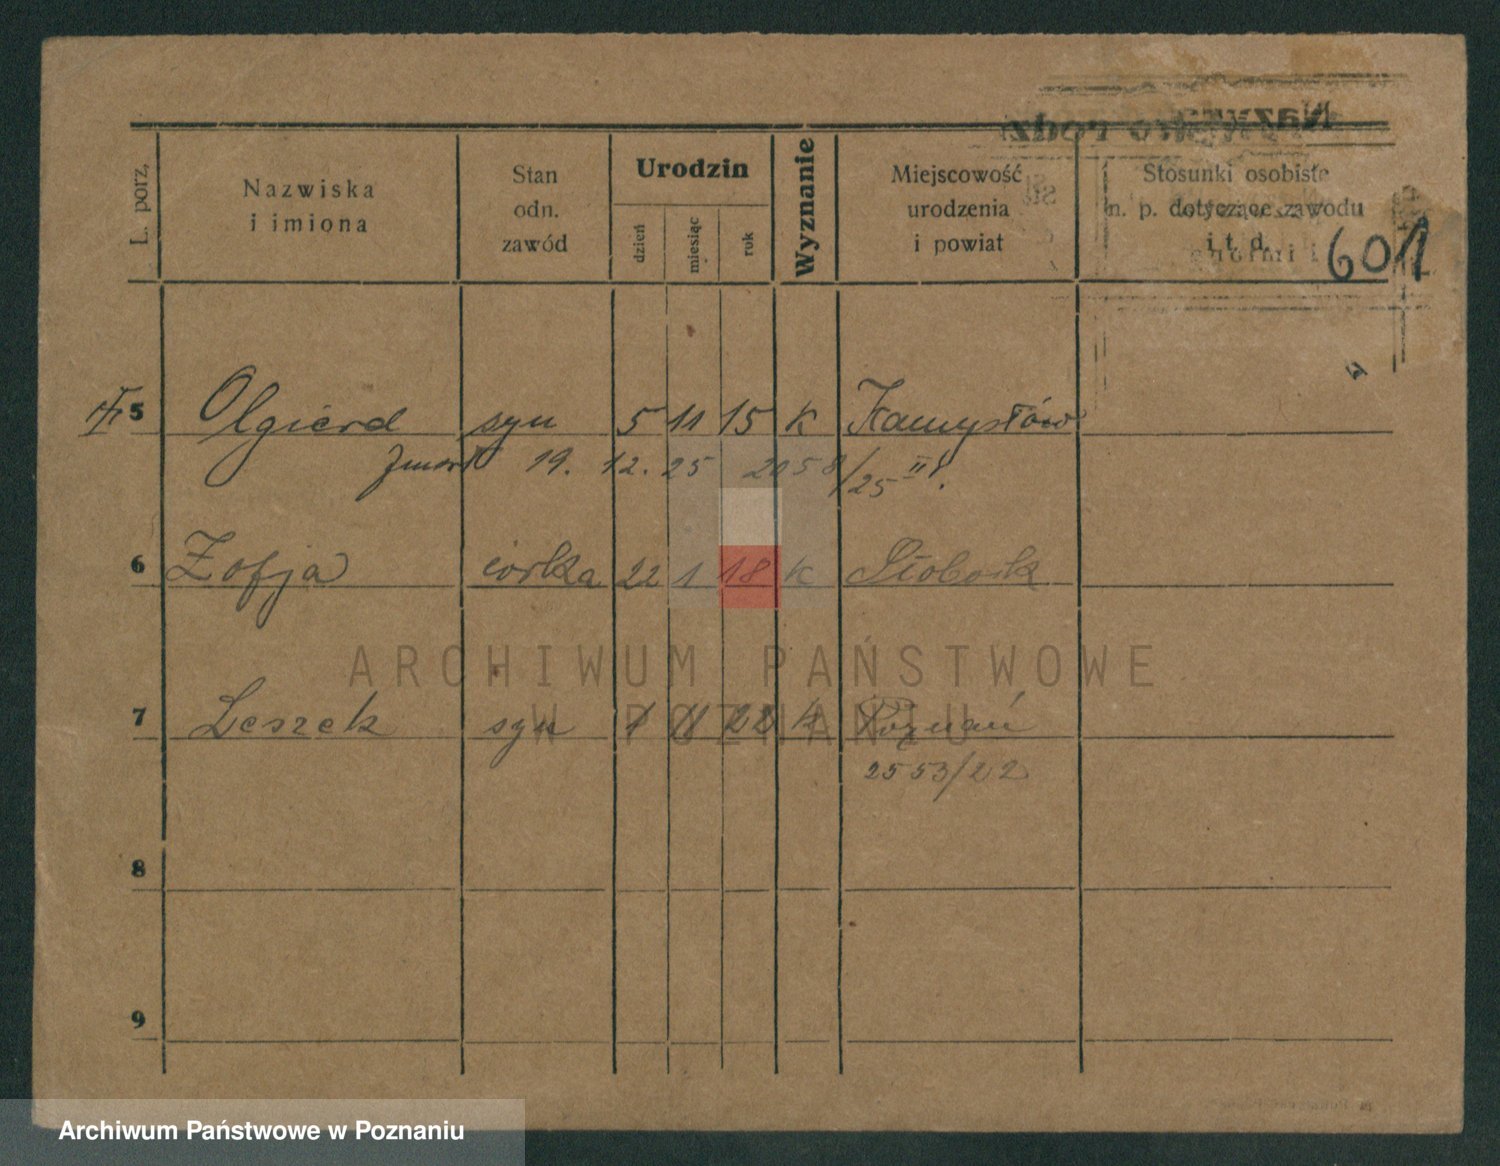 L. porz.
Nazwiska
i imiona
Stan
odn.
zawód
Urodzin
dzień
miesiąc
rok
Wyznanie
Miejscowość
urodzenia
i powiat
Stosunki osobiste
n. p. dotyczące zawodu
i t. d.
601
5 Olgierd syn 5 11 15 k Kamysłów
Zmarł 19. 12. 25 2058/25 II
6 Zofja córka 22 1 18 k
7 Leszek syn 1 11 22 k Poznań
2553/22
8
9
ARCHIWUM PAŃSTWOWE
W POZNANIU
Archiwum Państwowe w Poznaniu